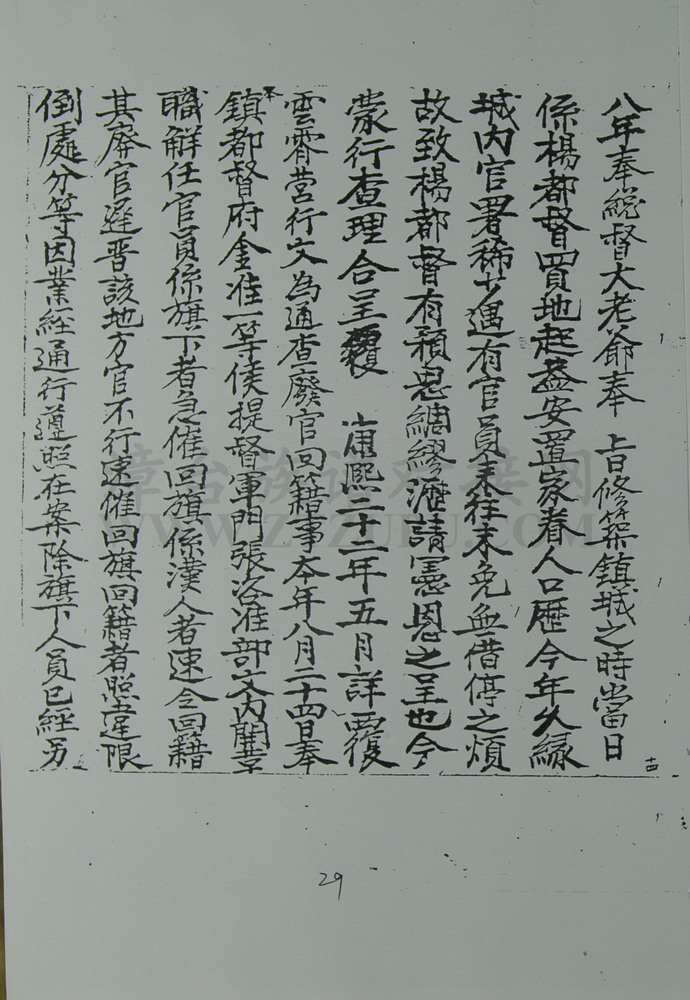 八年奉總督大老爺奉 上旨修築鎮城之時當日
係楊都督買地起蓋安置家眷人口歷今年久緣
城內官署稀少遇有官員來往未免無借停之煩
故致楊都督有預思綢繆瀝請憲恩之呈也今
蒙行查理合呈覆 康熙二十二年五月詳覆
雲霄營行文為通查廢官回籍事本年八月二十四日奉
本鎮都督府金准一等侯提督軍門張咨准部文內開
職解任官員係旗下者急催回旗係漢人者速令回籍
其廢官遲晋該地方官不行速催回旗回籍者照違限
倒處分等因業經通行遵照在案除旗下人員已經另
十四
29
WWW.ZTZUPU.COM